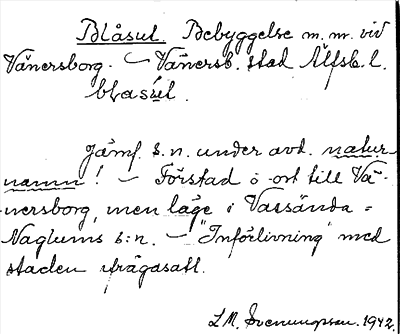 Blåsut. Bebyggelse m.m. vid
Vänersborg. – Vänersb. stad Älfsb. l.
blasút.
Jämf. s.n. under avd. natur-
namn! – Förstad o. ort till Vä-
nersborg, men läge i Vassända-
Naglums s:n. – "Införlivning" med
staden ifrågasatt.
L.M. Svenungsson. 1942.